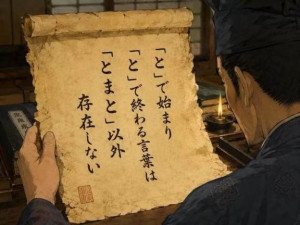 「と」で始まり
「と」で終わる言葉は
「とまと」以外
存在しない